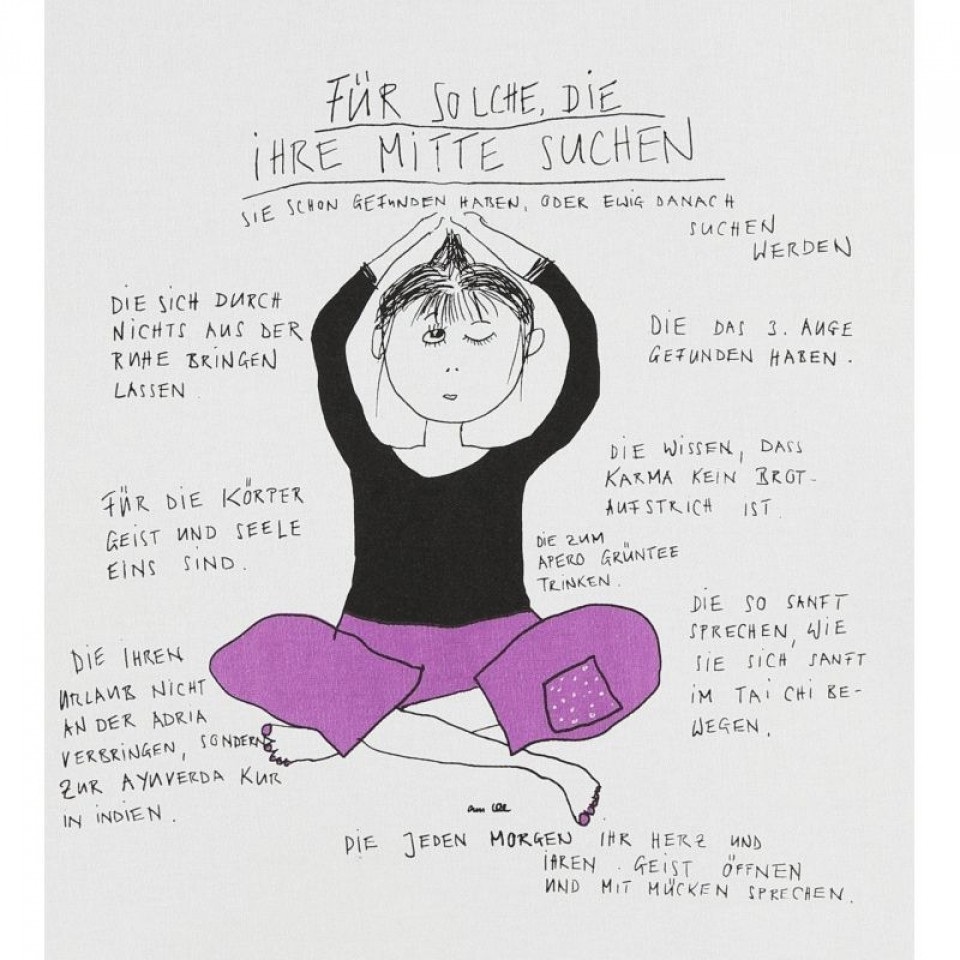 FÜR SOLCHE, DIE
IHRE MITTE SUCHEN
SIE SCHON GEFUNDEN HABEN, ODER EWIG DANACH
SUCHEN
WERDEN
DIE SICH DURCH
NICHTS AUS DER
RUHE BRINGEN
LASSEN
DIE DAS 3. AUGE
GEFUNDEN HABEN.
DIE WISSEN, DASS
KARMA KEIN BROT-
AUFSTRICH IST.
FÜR DIE KÖRPER
GEIST UND SEELE
EINS SIND.
DIE ZUM
APERO GRÜNTEE
TRINKEN.
DIE SO SANFT
SPRECHEN, WIE
SIE SICH SANFT
IM TAI CHI BE-
WEGEN.
DIE IHREN
URLAUB NICHT
AN DER ADRIA
VERBRINGEN, SONDERN
ZUR AYUVERDA KUR
IN INDIEN.
DIE JEDEN MORGEN IHR HERZ UND
IHREN GEIST ÖFFNEN
UND MIT MÜCKEN SPRECHEN.